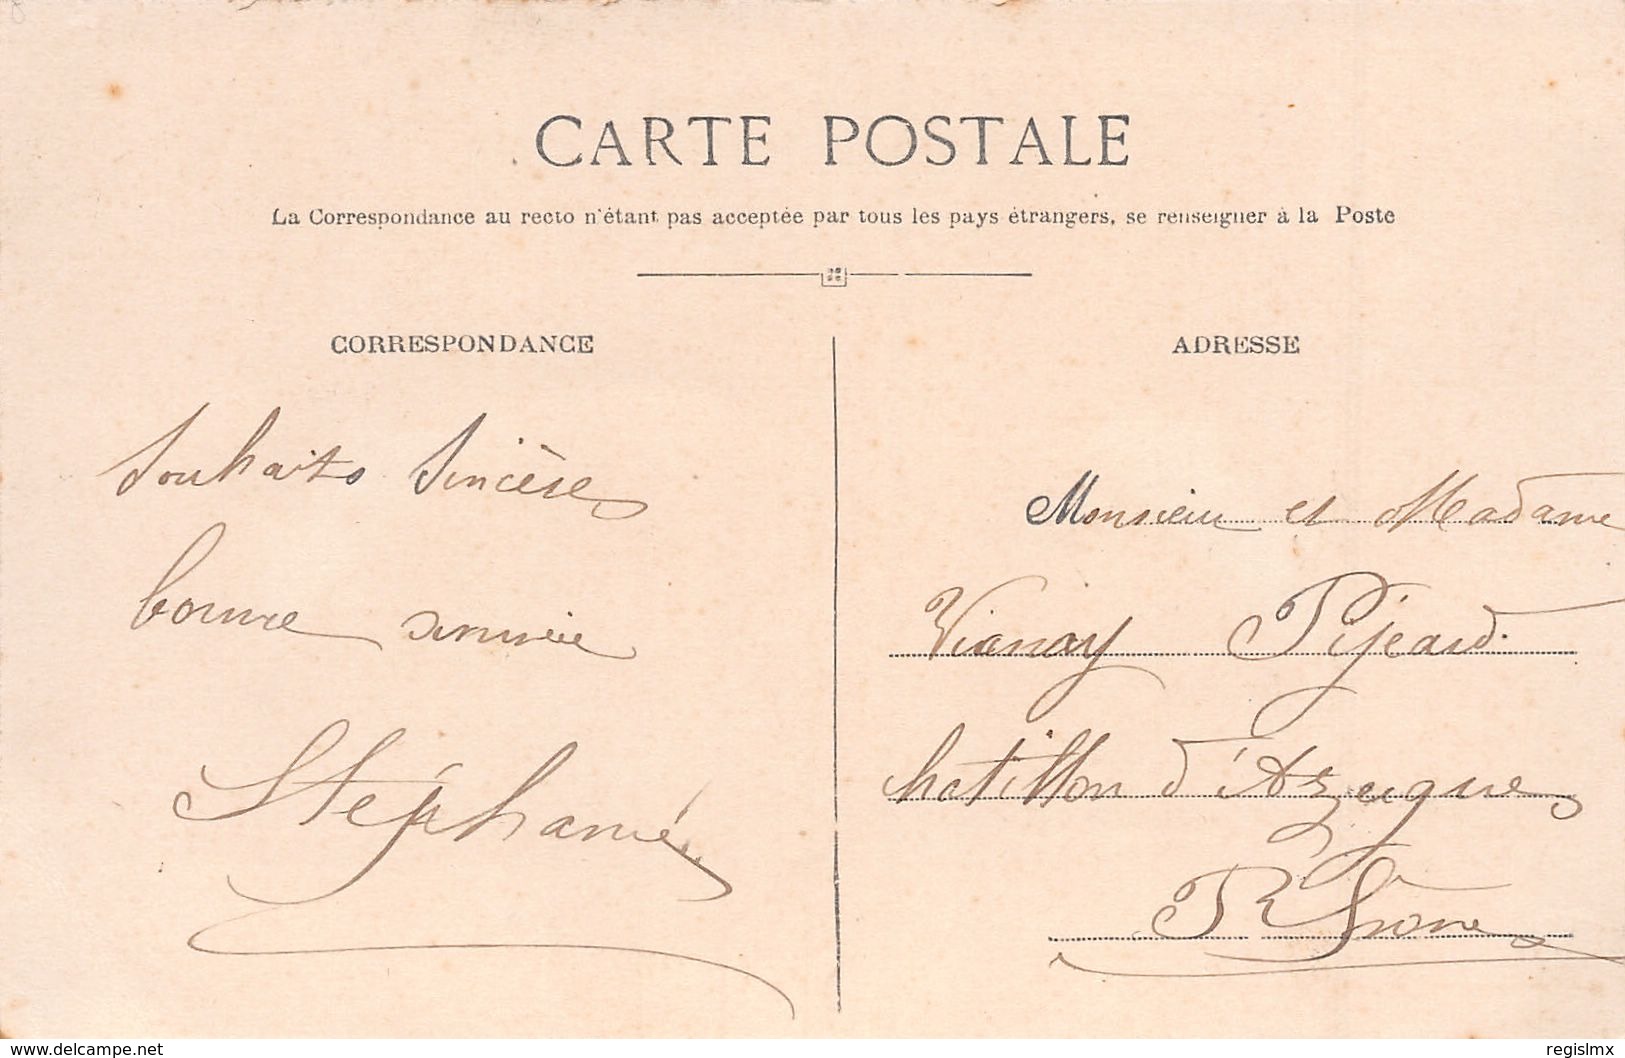 CARTE POSTALE
La Correspondance au recto n'étant pas acceptée par tous les pays étrangers, se renseigner à la Poste
CORRESPONDANCE
Souhaits Sincères
bonne année
Stéphanie
ADRESSE
Monsieur et Madame
Vianay Pijeard
chatillon d'Azergues
Rhône
www.delcampe.net
regislmx